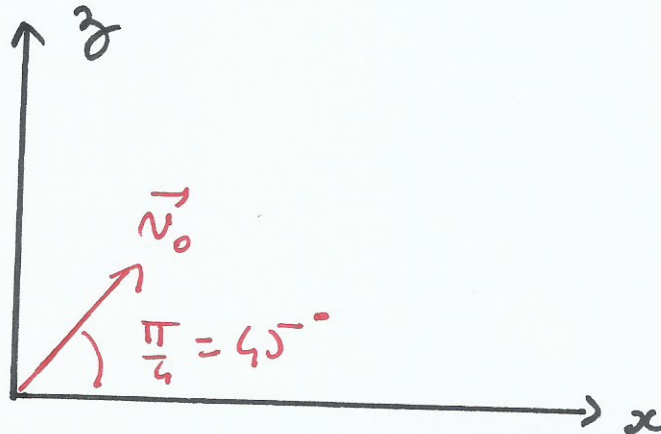 z
v₀
π/4 = 45°
x